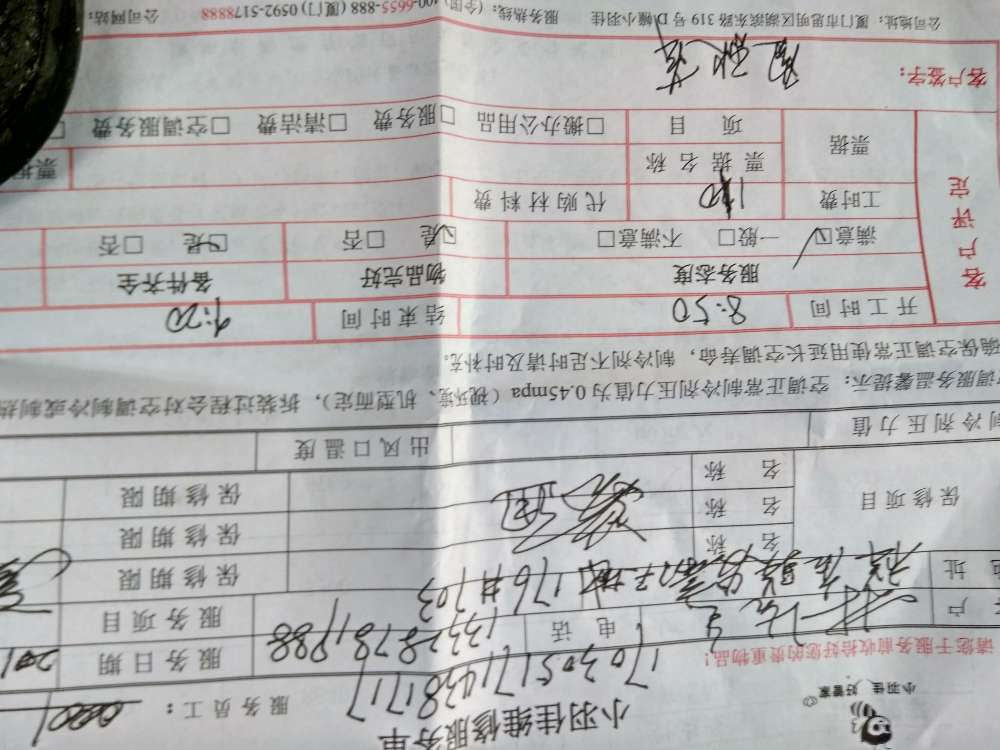 小羽佳 好管家
小羽佳维修服务单
请您于服务前收拾您的贵重物品！
服务员工：
户
1703051714381717
电话
13328781888
服务日期
201
址
176#703
服务项目
保修项目
名 称
保修期限
名 称
保修期限
名 称
保修期限
制冷剂压力值
出风口温度
调服务温馨提示：空调正常制冷剂压力值为0.45mpa（视环境、机型而定），拆装过程会对空调制冷或制热
确保空调正常使用延长空调寿命，制冷剂不足时请及时补充。
客户评定
开工时间
8:50
结束时间
9:20
服务态度
物品完好
备件齐全
满意☑ 一般□ 不满意□
☑是 □否
☑是 □否
工时费
代购材料费
票据
票据名称
票据
项 目
□搬办公用品 □服务费 □清洁费 □空调服务费 □
客户签字：
公司地址：厦门市思明区湖滨东路319号D幢小羽佳 服务热线：(全国) 400-6655-888 (厦门) 0592-5178888 公司网站：